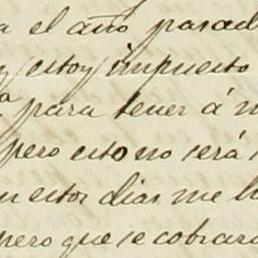 a el año pasad
y estoy impuesto
para tener á m
pero esto no será
n estos dias me h
pero que se cobrara